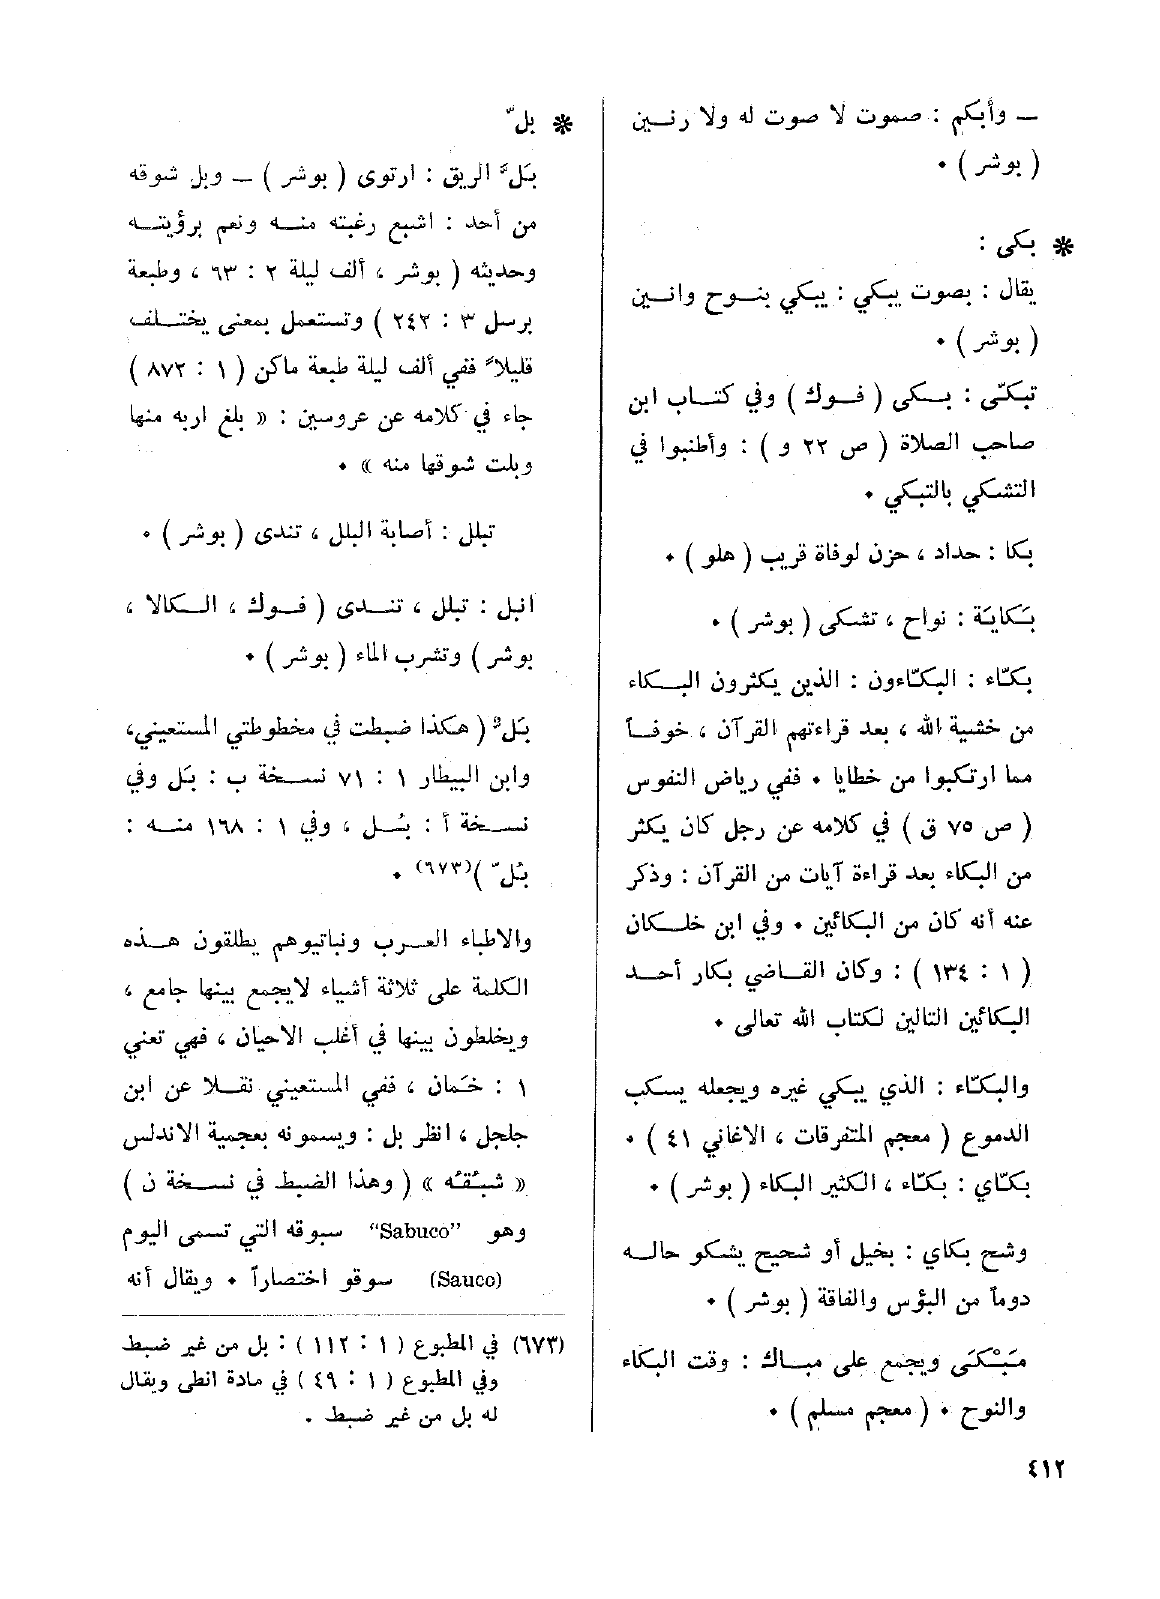 — وأبكم : صموت لا صوت له ولا رنين
( بوشر ) •
* بكى :
يقال : بصوت يبكي : يبكي بنوح وانين
( بوشر ) •
تبكّى : بكى ( فوك ) وفي كتاب ابن
صاحب الصلاة ( ص ٢٢ و ) : وأطنبوا في
التشكي بالتبكي •
بكا : حداد ، حزن لوفاة قريب ( هلو ) •
بَكايَة : نواح ، تشكى ( بوشر ) •
بكّاء : البكّاءون : الذين يكثرون البكاء
من خشية الله ، بعد قراءتهم القرآن ، خوفاً
مما ارتكبوا من خطايا • ففي رياض النفوس
( ص ٧٥ ق ) في كلامه عن رجل كان يكثر
من البكاء بعد قراءة آيات من القرآن : وذكر
عنه أنه كان من البكائين • وفي ابن خلكان
( ١ : ١٣٤ ) : وكان القاضي بكار أحد
البكائين التالين لكتاب الله تعالى •
والبكّاء : الذي يبكي غيره ويجعله يسكب
الدموع ( معجم المتفرقات ، الاغاني ٤١ ) •
بكّاي : بكّاء ، الكثير البكاء ( بوشر ) •
وشح بكاي : بخيل أو شحيح يشكو حاله
دوماً من البؤس والفاقة ( بوشر ) •
مَبْكَى ويجمع على مباك : وقت البكاء
والنوح • ( معجم مسلم ) •
* بلّ
بَلّ الريق : ارتوى ( بوشر ) — وبل شوقه
من أحد : اشبع رغبته منه ونعم برؤيته
وحديثه ( بوشر ، ألف ليلة ٢ : ٦٣ ، وطبعة
برسل ٣ : ٢٤٢ ) وتستعمل بمعنى يختلف
قليلاً ففي ألف ليلة طبعة ماكن ( ١ : ٨٧٢ )
جاء في كلامه عن عروسين : « بلغ اربه منها
وبلت شوقها منه » •
تبلل : أصابة البلل ، تندى ( بوشر ) •
انبل : تبلل ، تندى ( فوك ، الكالا ،
بوشر ) وتشرب الماء ( بوشر ) •
بَلّ ( هكذا ضبطت في مخطوطتي المستعيني،
وابن البيطار ١ : ٧١ نسخة ب : بَل وفي
نسخة أ : بُل ، وفي ١ : ١٦٨ منه :
بُلّ )(٦٧٣) •
والاطباء العرب ونباتيوهم يطلقون هذه
الكلمة على ثلاثة أشياء لايجمع بينها جامع ،
ويخلطون بينها في أغلب الاحيان ، فهي تعني
١ : خَمان ، ففي المستعيني نقلا عن ابن
جلجل ، انظر بل : ويسمونه بعجمية الاندلس
« شبُقُه » ( وهذا الضبط في نسخة ن )
وهو "Sabuco" سبوقه التي تسمى اليوم
(Sauco) سوقو اختصاراً • ويقال أنه
(٦٧٣) في المطبوع ( ١ : ١١٢ ) : بل من غير ضبط
وفي المطبوع ( ١ : ٤٩ ) في مادة انطى ويقال
له بل من غير ضبط .
٤١٢